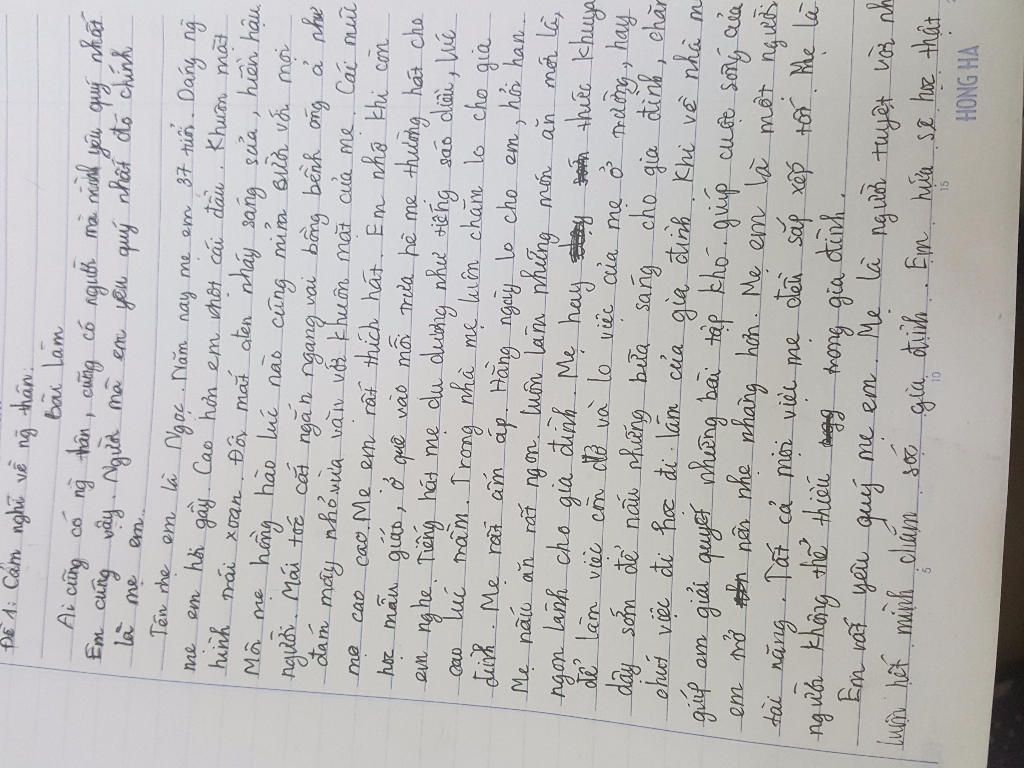 Đề 1: Cảm nghĩ về ng thân:
Bài làm
Ai cũng có ng thân, cũng có người mà mình yêu quý nhất
Em cũng vậy. Người mà em yêu quý nhất đó chính
là mẹ em.
Tên mẹ em là Ngọc. Năm nay mẹ em 37 tuổi. Dáng ng
mẹ em hơi gầy. Cao hơn em một cái đầu. Khuôn mặt
hình trái xoan. Đôi mắt đen nháy sáng sủa, hiền hậu
Môi mẹ hồng hào lúc nào cũng nửa Bười với mọi
người. Mái tóc cắt ngắn ngang vai bồng bềnh óng ả như
đám mây nhỏ vừa vặn với khuôn mặt của mẹ. Cái mũi
mẹ cao cao. Mẹ em rất thích hát. Em nhớ khi còn
học mẫu giáo, ở quê vào mỗi trưa hè mẹ thường hát cho
em nghe. Tiếng hát mẹ du dương như tiếng sáo diều, lúc
cao lúc trầm. Trong nhà mẹ luôn chăm lo cho gia
đình. Mẹ rất ấm áp. Hằng ngày lo cho em, hỏi han.
Mẹ nấu ăn rất ngon, luôn làm những món ăn mới lạ,
ngon lành cho gia đình. Mẹ hay thức khuya
để làm việc còn dở và lo việc của mẹ ở trường, hay
dậy sớm để nấu những bữa sáng cho gia đình, chăm
chút việc đi học đi làm của gia đình. Khi về nhà m
giúp em giải quyết những bài tập khó. giúp cuộc sống của
em trở nên nhẹ nhàng hơn. Mẹ em là một người
tài năng. Tất cả mọi việc mẹ đều sắp xếp tốt. Mẹ là
người không thể thiếu trong gia đình.
Em rất yêu quý mẹ em. Mẹ là người tuyệt vời nh
luôn hết mình chăm sóc gia đình. Em hứa sẽ học thật
5
10
15
HONG HA